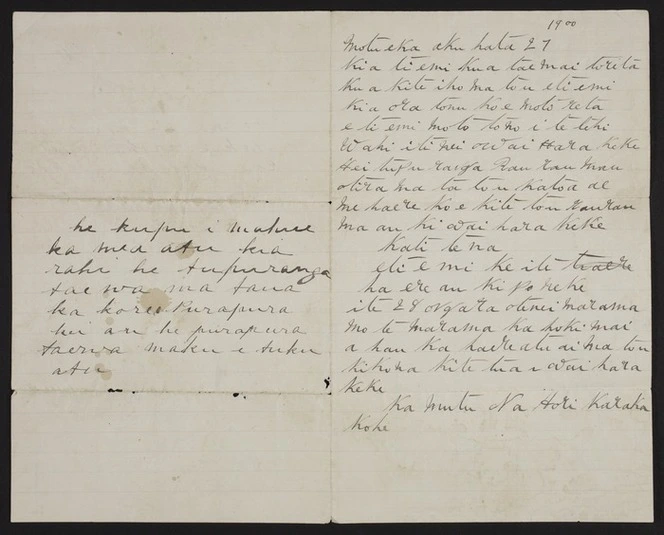 1900
Motueka aku hata 27
Kia tiemi kua tae mai toreta
kua kite iho ma tou eti emi
kia ora tonu koe moto reta
e ti emi moto tono i te tihi
Wahi iti nei o Wai Hara keke
Hei tupu ranga Rau rau Mau
otira ma ta tou katoa ae
me haere koe kite tou raurau
ma au ki Wai hara keke
Kati tena
eti e mi ke ite haere
ha ere au ki po neke
ite 28 onga ra otenei marama
mo te marama ka hoki mai
a hau ka haere atu ai ma tou
kikona kite tua i Wai hara
keke
Ka mutu Na Hori Karaka
Kohe
he kupu i mahue
ka mea atu kia
rahi he tupuranga
taewa ma taua
ka kore Purapura
hei au he purapura
taewa maku e tuku
atu